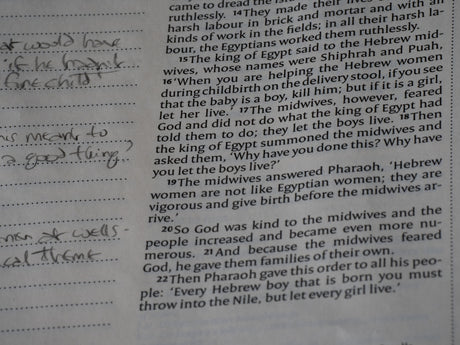 came to dread the
ruthlessly. 14They made their lives
harsh labour in brick and mortar and with all
kinds of work in the fields; in all their harsh la-
bour, the Egyptians worked them ruthlessly.
15The king of Egypt said to the Hebrew mid-
wives, whose names were Shiphrah and Puah,
16'When you are helping the Hebrew women
during childbirth on the delivery stool, if you see
that the baby is a boy, kill him; but if it is a girl,
let her live.' 17The midwives, however, feared
God and did not do what the king of Egypt had
told them to do; they let the boys live. 18Then
the king of Egypt summoned the midwives and
asked them, 'Why have you done this? Why have
you let the boys live?'
19The midwives answered Pharaoh, 'Hebrew
women are not like Egyptian women; they are
vigorous and give birth before the midwives ar-
rive.'
20So God was kind to the midwives and the
people increased and became even more nu-
merous. 21And because the midwives feared
God, he gave them families of their own.
22Then Pharaoh gave this order to all his peo-
ple: 'Every Hebrew boy that is born you must
throw into the Nile, but let every girl live.'
would have
if he
fine child!
meant to
a good thing?
at wells -
theme